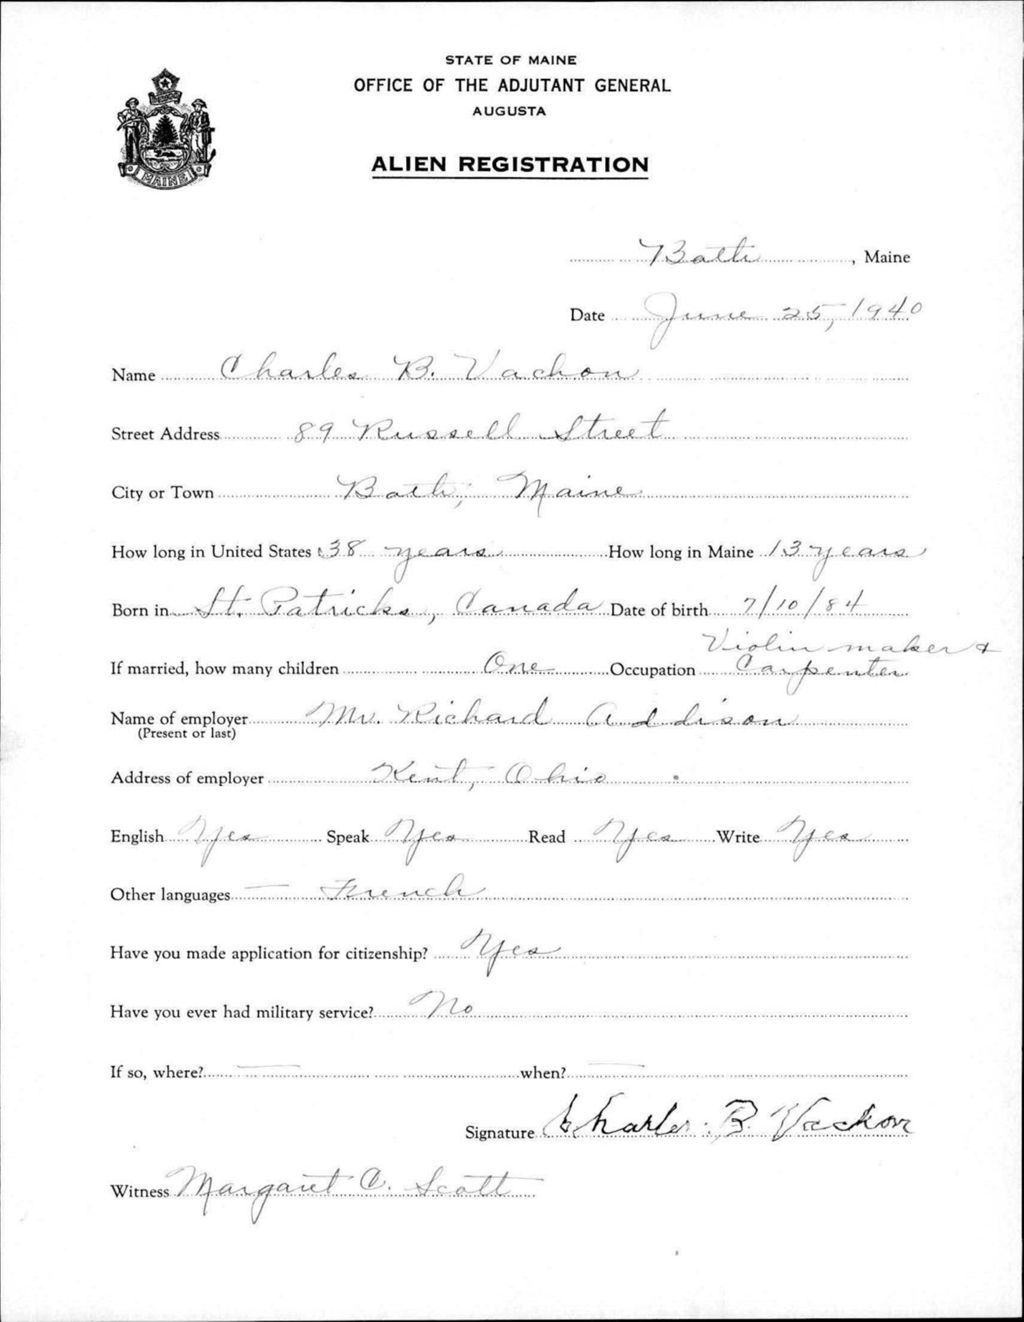 STATE OF MAINE
OFFICE OF THE ADJUTANT GENERAL
AUGUSTA
ALIEN REGISTRATION
MAINE
Bath, Maine
Date June 25, 1940
Name Charles B. Vachon
Street Address 89 Russell Street
City or Town Bath, Maine
How long in United States 38 years How long in Maine 13 years
Born in St. Patricks, Canada Date of birth 7/10/84
If married, how many children One Occupation Violin maker & Carpenter
Name of employer Mr. Richard Addison
(Present or last)
Address of employer Kent, Ohio
English Yes Speak Yes Read Yes Write Yes
Other languages — French
Have you made application for citizenship? Yes
Have you ever had military service? No
If so, where? — when? —
Signature Charles. B. Vachon
Witness Margaret C. Scott